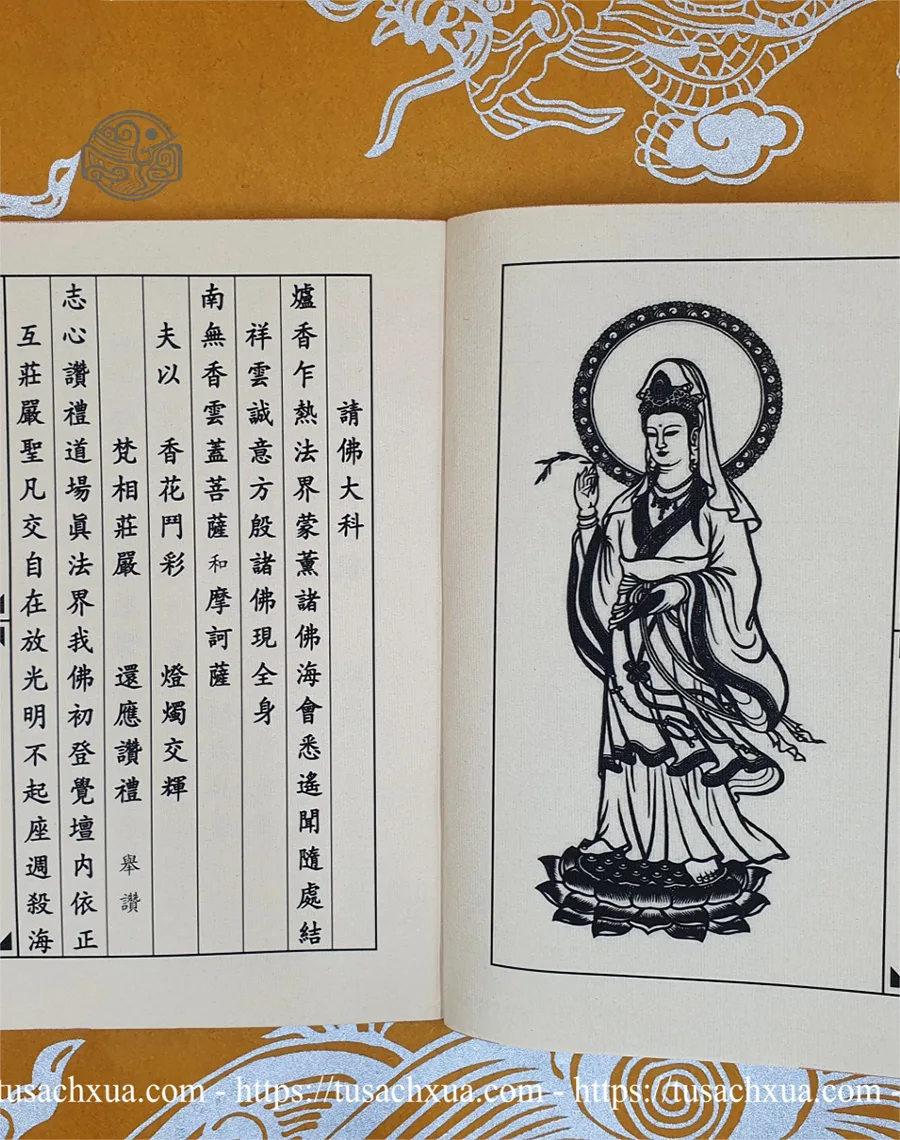 請佛大科
爐香乍熱法界蒙薰諸佛海會悉遙聞隨處結
祥雲誠意方殷諸佛現全身
南無香雲蓋菩薩和摩訶薩
夫以 香花鬥彩 燈燭交輝
梵相莊嚴 還應讚禮 舉讚
志心讚禮道場眞法界我佛初登覺壇內依正
互莊嚴聖凡交自在放光明不起座週殺海
tusachxua.com - https://tusachxua.com - https://tusachxua.com -